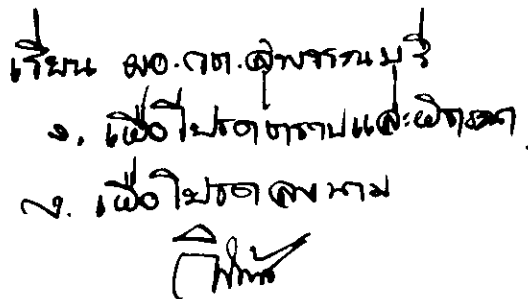 เรียน ผอ.กต.สุพรรณบุรี
๑. เพื่อโปรดทราบและพิจารณา
๒. เพื่อโปรดลงนาม